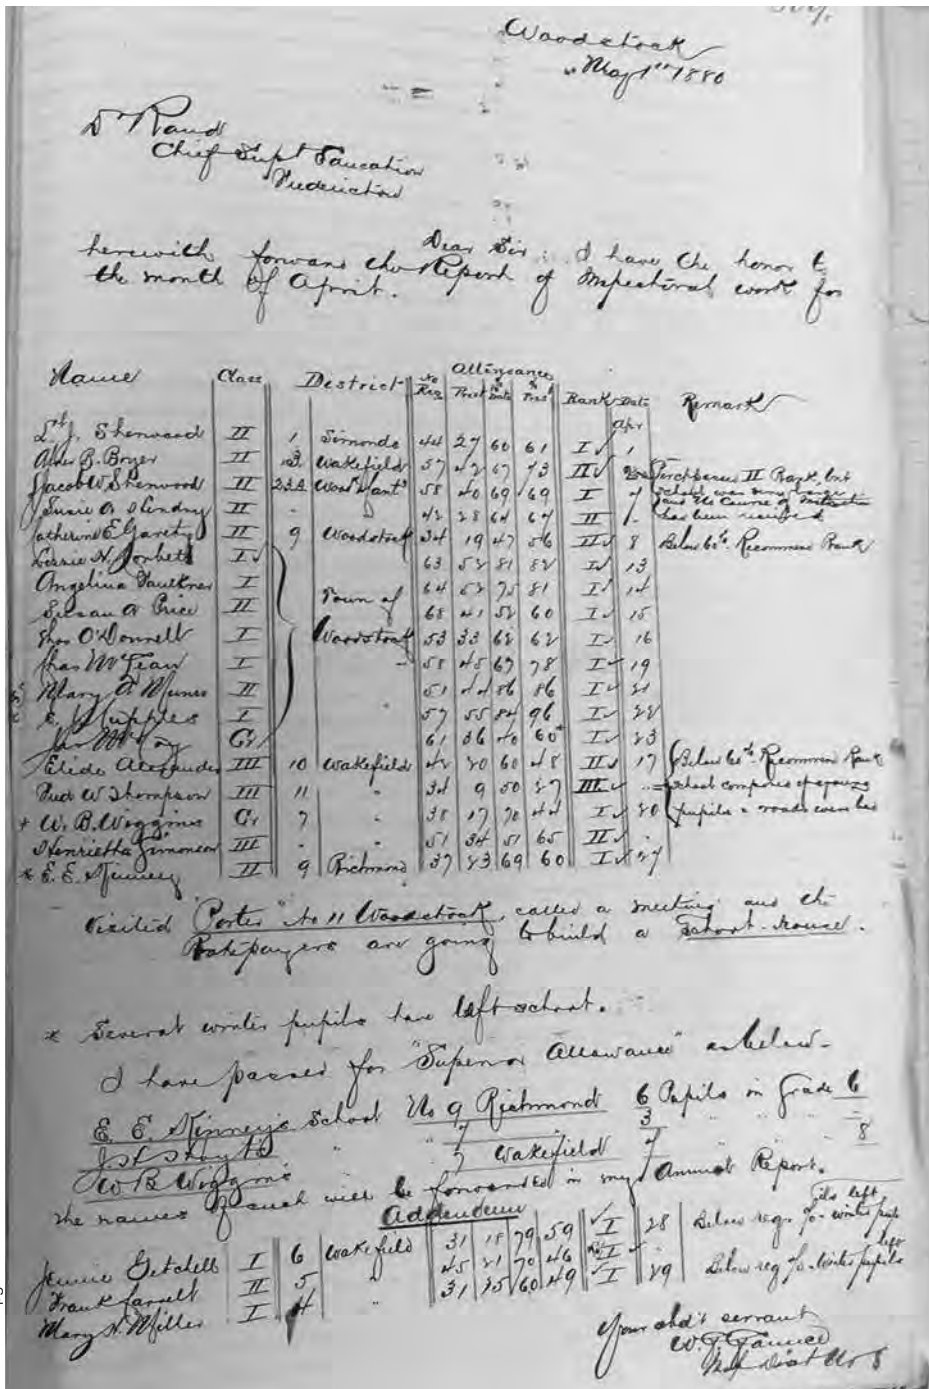 Woodstock
May 1st 1880
Dr Rand
Chief Supt Education
Fredericton
Dear Sir: I have the honor to
herewith forward the Report of Inspectoral work for
the month of April.
Name Class District No Reg Attendance Prest % Date % Prest Rank Date Remark
Apr
Sherwood II 1 Simonds 44 27 60 61 I 1
B. Boyer II 3 Wakefield 57 42 67 73 II Perchance II Rank, but
Jacob W Sherwood II 58 40 69 69 I 7 school was very large
Susie A II " 42 28 64 67 II " and no Course of Instruction
has been received
Catherine E II 9 Woodstock 34 19 47 56 8 Below 60%. Recommend Rank
I 63 52 81 82 I 13
Angelina Faulkner I 64 52 75 81 I 14
Susan A Price II Town of 68 41 52 60 I 15
Thos O'Donnell I Woodstock 53 33 62 62 I 16
Chas McLean I 58 45 67 78 I 19
Mary A Munro II 51 44 86 86 I 21
I 57 55 84 96 I 22
Jas McCoy Gr 61 36 40 60 I 23
Alexander III 10 Wakefield 42 20 60 48 II 17 Below 60%. Recommend Rank
Fred W Thompson III 11 " 34 9 50 27 III " school composed of young
* W. B. Wiggins Gr 7 " 38 17 70 44 I 20 pupils & roads were bad
Henrietta Simonson III " " 51 34 51 65 II "
* E. E. Kinney II 9 Richmond 37 23 69 60 I 27
Visited "Porter" No 11 Woodstock, called a meeting and the
Ratepayers are going to build a School-house.
* Several winter pupils have left school.
I have passed for "Superior Allowance" as below-
E. E. Kinney's School No 9 Richmond 6 Pupils in Grade 6
" " 7 " 3 " " "
W B Wiggins " 7 Wakefield 7 " " 8
The names of such will be forwarded in my Annual Report.
Addendum
Jennie Getchell I 6 Wakefield 31 18 79 59 I 28 Below reg. % winter pupils left
Frank II 5 " 45 21 70 46 I "
Mary H. Miller I 4 " 31 15 60 49 I 29 Below reg % winter pupils left
Your obd't servant
W. G. Gaunce
Insp Dist No 8